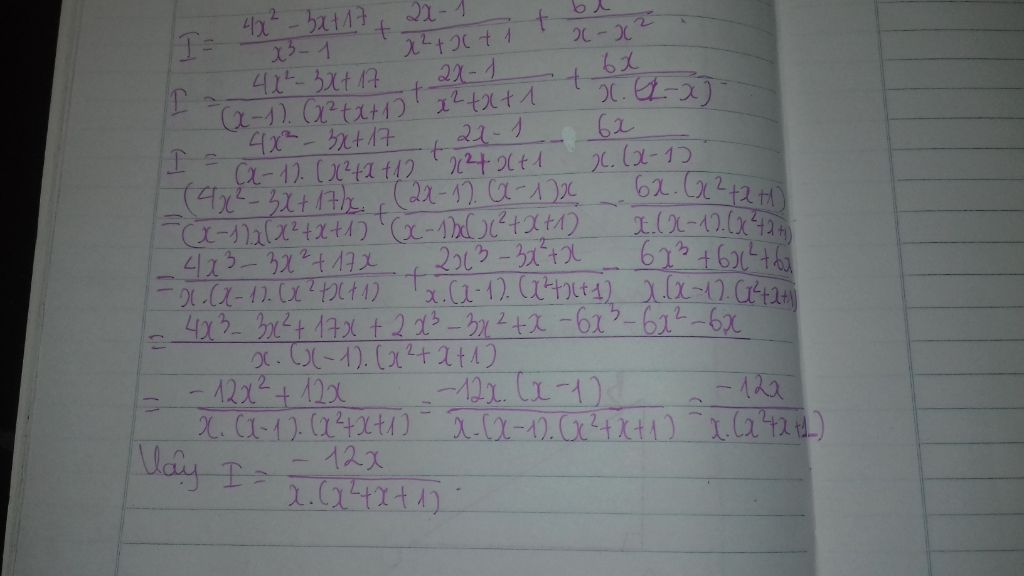 I = (4x² - 3x + 17)/(x³ - 1) + (2x - 1)/(x² + x + 1) + 6x/(x - x²)
I = (4x² - 3x + 17)/((x-1).(x²+x+1)) + (2x - 1)/(x² + x + 1) + 6x/(x.(1-x))
I = (4x² - 3x + 17)/((x-1).(x²+x+1)) + (2x - 1)/(x² + x + 1) - 6x/(x.(x-1))
= ((4x² - 3x + 17)x)/((x-1)x(x²+x+1)) + ((2x-1).(x-1)x)/((x-1)x(x²+x+1)) - (6x.(x²+x+1))/(x.(x-1).(x²+x+1))
= (4x³ - 3x² + 17x)/(x.(x-1).(x²+x+1)) + (2x³ - 3x² + x)/(x.(x-1).(x²+x+1)) - (6x³ + 6x² + 6x)/(x.(x-1).(x²+x+1))
= (4x³ - 3x² + 17x + 2x³ - 3x² + x - 6x³ - 6x² - 6x)/(x.(x-1).(x²+x+1))
= (-12x² + 12x)/(x.(x-1).(x²+x+1)) = (-12x.(x-1))/(x.(x-1).(x²+x+1)) = (-12x)/(x.(x²+x+1))
Vậy I = (-12x)/(x.(x²+x+1)).